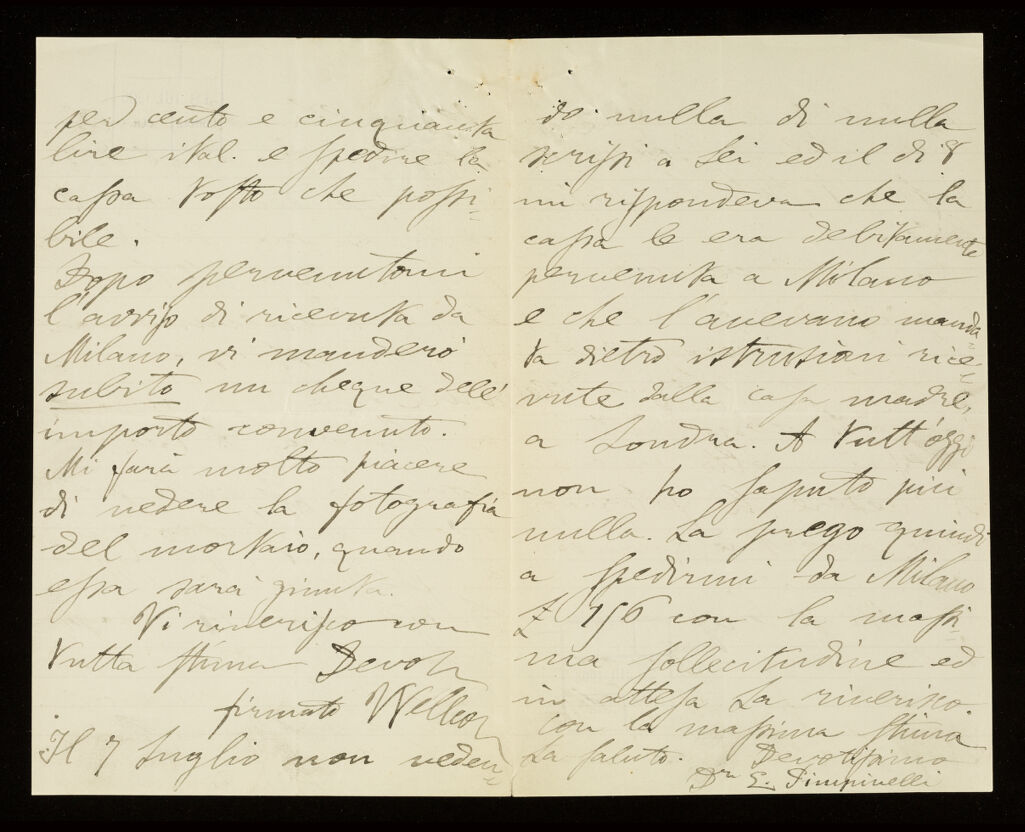 per cento e cinquanta
lire ital. e spedire la
cassa tosto che possi-
bile.
Dopo pervenutomi
l'avviso di ricevuta da
Milano, vi manderò
subito un cheque dell'
importo convenuto.
Mi farà molto piacere
di vedere la fotografia
del mortaio, quando
essa sarà giunta.
Vi riverisco con
tutta stima Devot
firmato
Il 7 Luglio non veden-
do nulla di nulla
scrissi a Lei ed il dì 8
mi rispondeva che la
cassa le era debitamente
pervenuta a Milano
e che l'avevano manda-
ta dietro istruzioni rice-
vute dalla casa madre,
a Londra. A tutt'oggi
non ho saputo più
nulla. La prego quindi
a spedirmi da Milano
£ 150 con la massi-
ma sollecitudine ed
in attesa La riverisco.
con la massima stima
La saluto. Devotissimo
D.r E. Pimpinelli